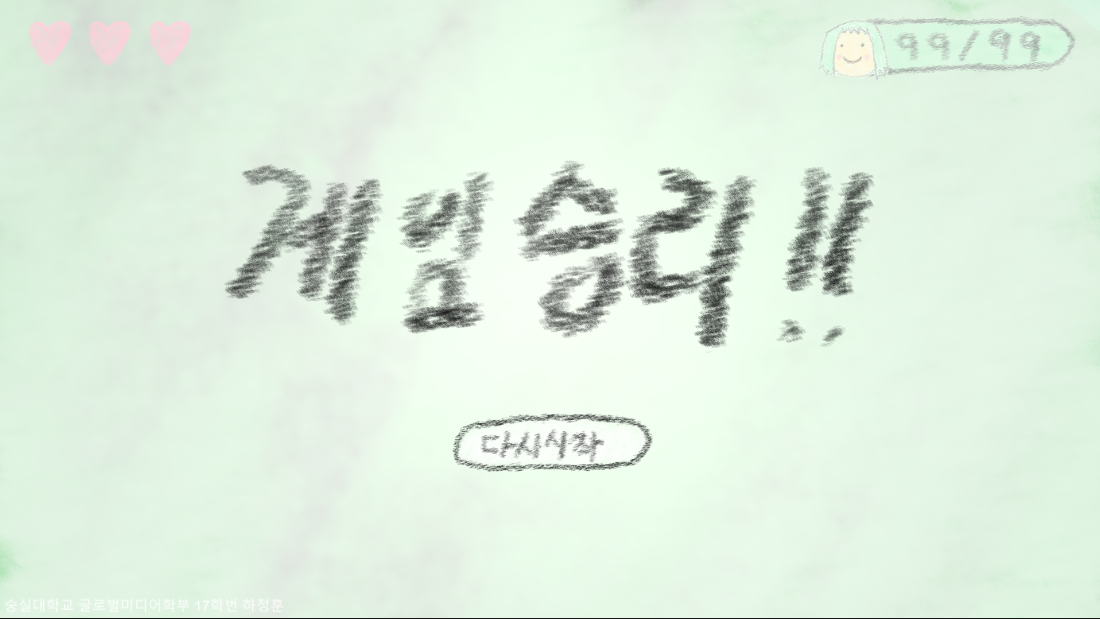 99/99
게임 승리!!
다시시작
숭실대학교 글로벌미디어학부 17학번 하정훈